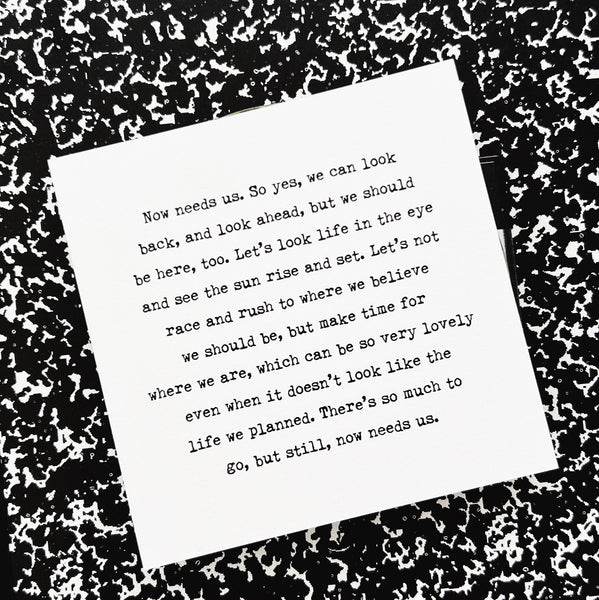 Now needs us. So yes, we can look
back, and look ahead, but we should
be here, too. Let's look life in the eye
and see the sun rise and set. Let's not
race and rush to where we believe
we should be, but make time for
where we are, which can be so very lovely
even when it doesn't look like the
life we planned. There's so much to
go, but still, now needs us.